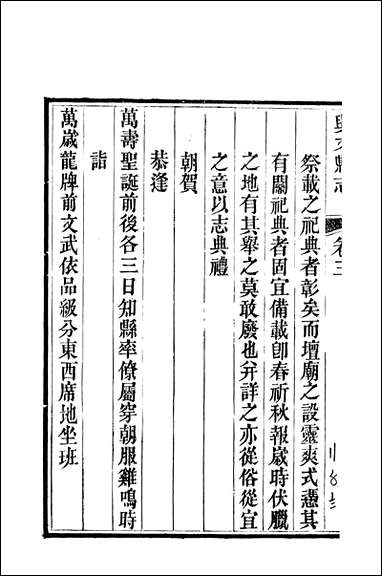 興文縣志 卷三
祭載之祀典者彰矣而壇廟之設靈爽式憑其
有關祀典者固宜備載卽春祈秋報歲時伏臘
之地有其舉之莫敢廢也幷詳之亦從俗從宜
之意以志典禮
朝賀
恭逢
萬壽聖誕前後各三日知縣率僚屬穿朝服雞鳴時
詣
萬歲龍牌前文武依品級分東西席地坐班